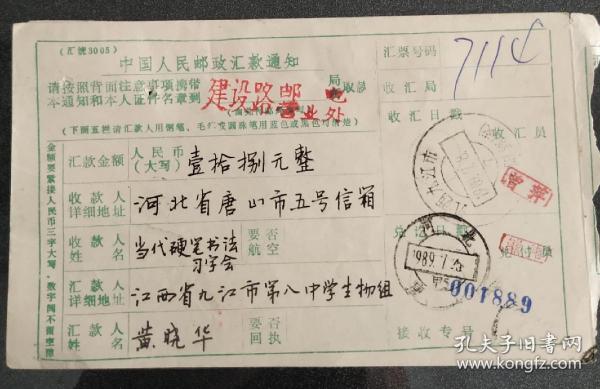 (汇储3005)
中国人民邮政汇款通知
汇票号码
7114
请按照背面注意事项携带
本通知和本人证件名章到
建设路邮电
建设路营业处
局
取款
收汇局
收汇日戳
收汇员
汇款金额
人民币
(大写)
壹拾捌元整
收款人
详细地址
河北省唐山市五号信箱
收款人
姓名
当代硬笔书法
习学会
要否
航空
兑讫日戳
1989.7.25
汇款人
详细地址
江西省九江市第八中学生物组
001889
汇款人
姓名
黄晓华
要否
回执
接收专号
金额要紧接人民币三字大写、数字间不留空隙
孔夫子旧书网
www.kongfz.com